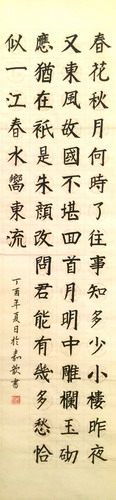 春花秋月何時了往事知多少小樓昨夜
又東風故國不堪回首月明中雕欄玉砌
應猶在祇是朱顏改問君能有幾多愁恰
似一江春水嚮東流
丁酉年夏日於嘉書